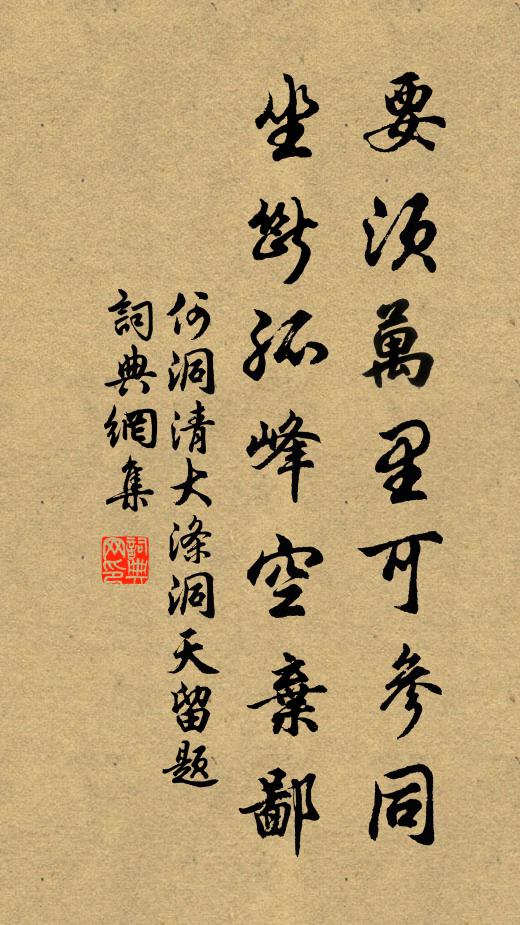 要須萬里可參同
坐斷孤峰空棄鄙
何洞清大滌洞天留題
詞典網集
詞典網印